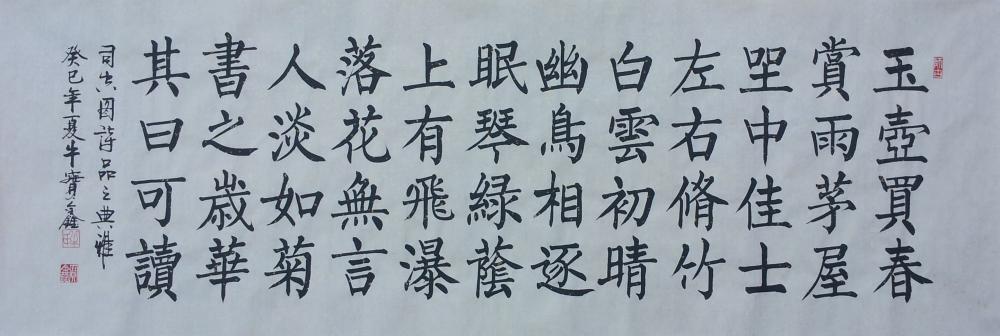 玉壺買春
賞雨茅屋
坐中佳士
左右脩竹
白雲初晴
幽鳥相逐
眠琴綠蔭
上有飛瀑
落花無言
人淡如菊
書之歲華
其曰可讀
司空圖詩品之典雅
癸巳年夏牛寶鑫